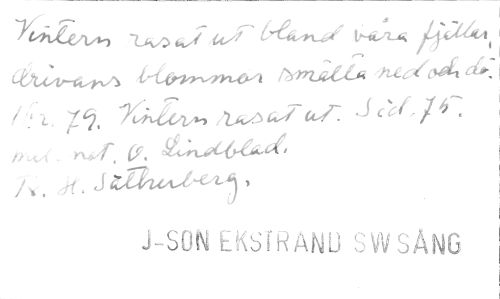 Vintern rasat ut bland våra fjällar,
drivans blommor smälta ned och dö.
Nr. 79. Vintern rasat ut. Sid. 75.
mel. not. O. Lindblad.
H. Sätherberg.
J-SON EKSTRAND SW SÅNG